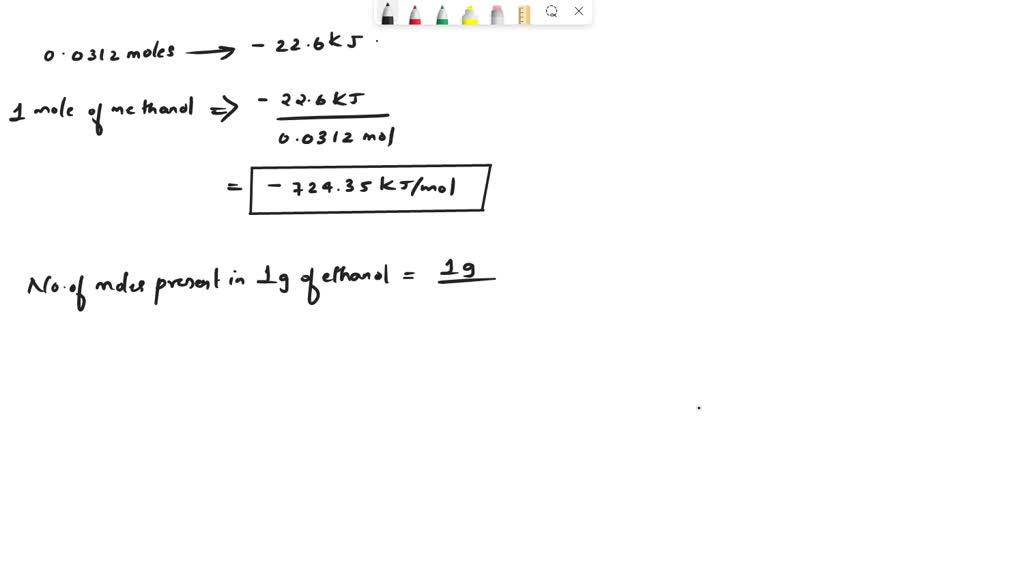 0.0312 moles → - 22.6 kJ
1 mole of methanol ⇒ - 22.6 kJ
0.0312 mol
= - 724.35 kJ/mol
No. of moles present in 1g of ethanol = 1g